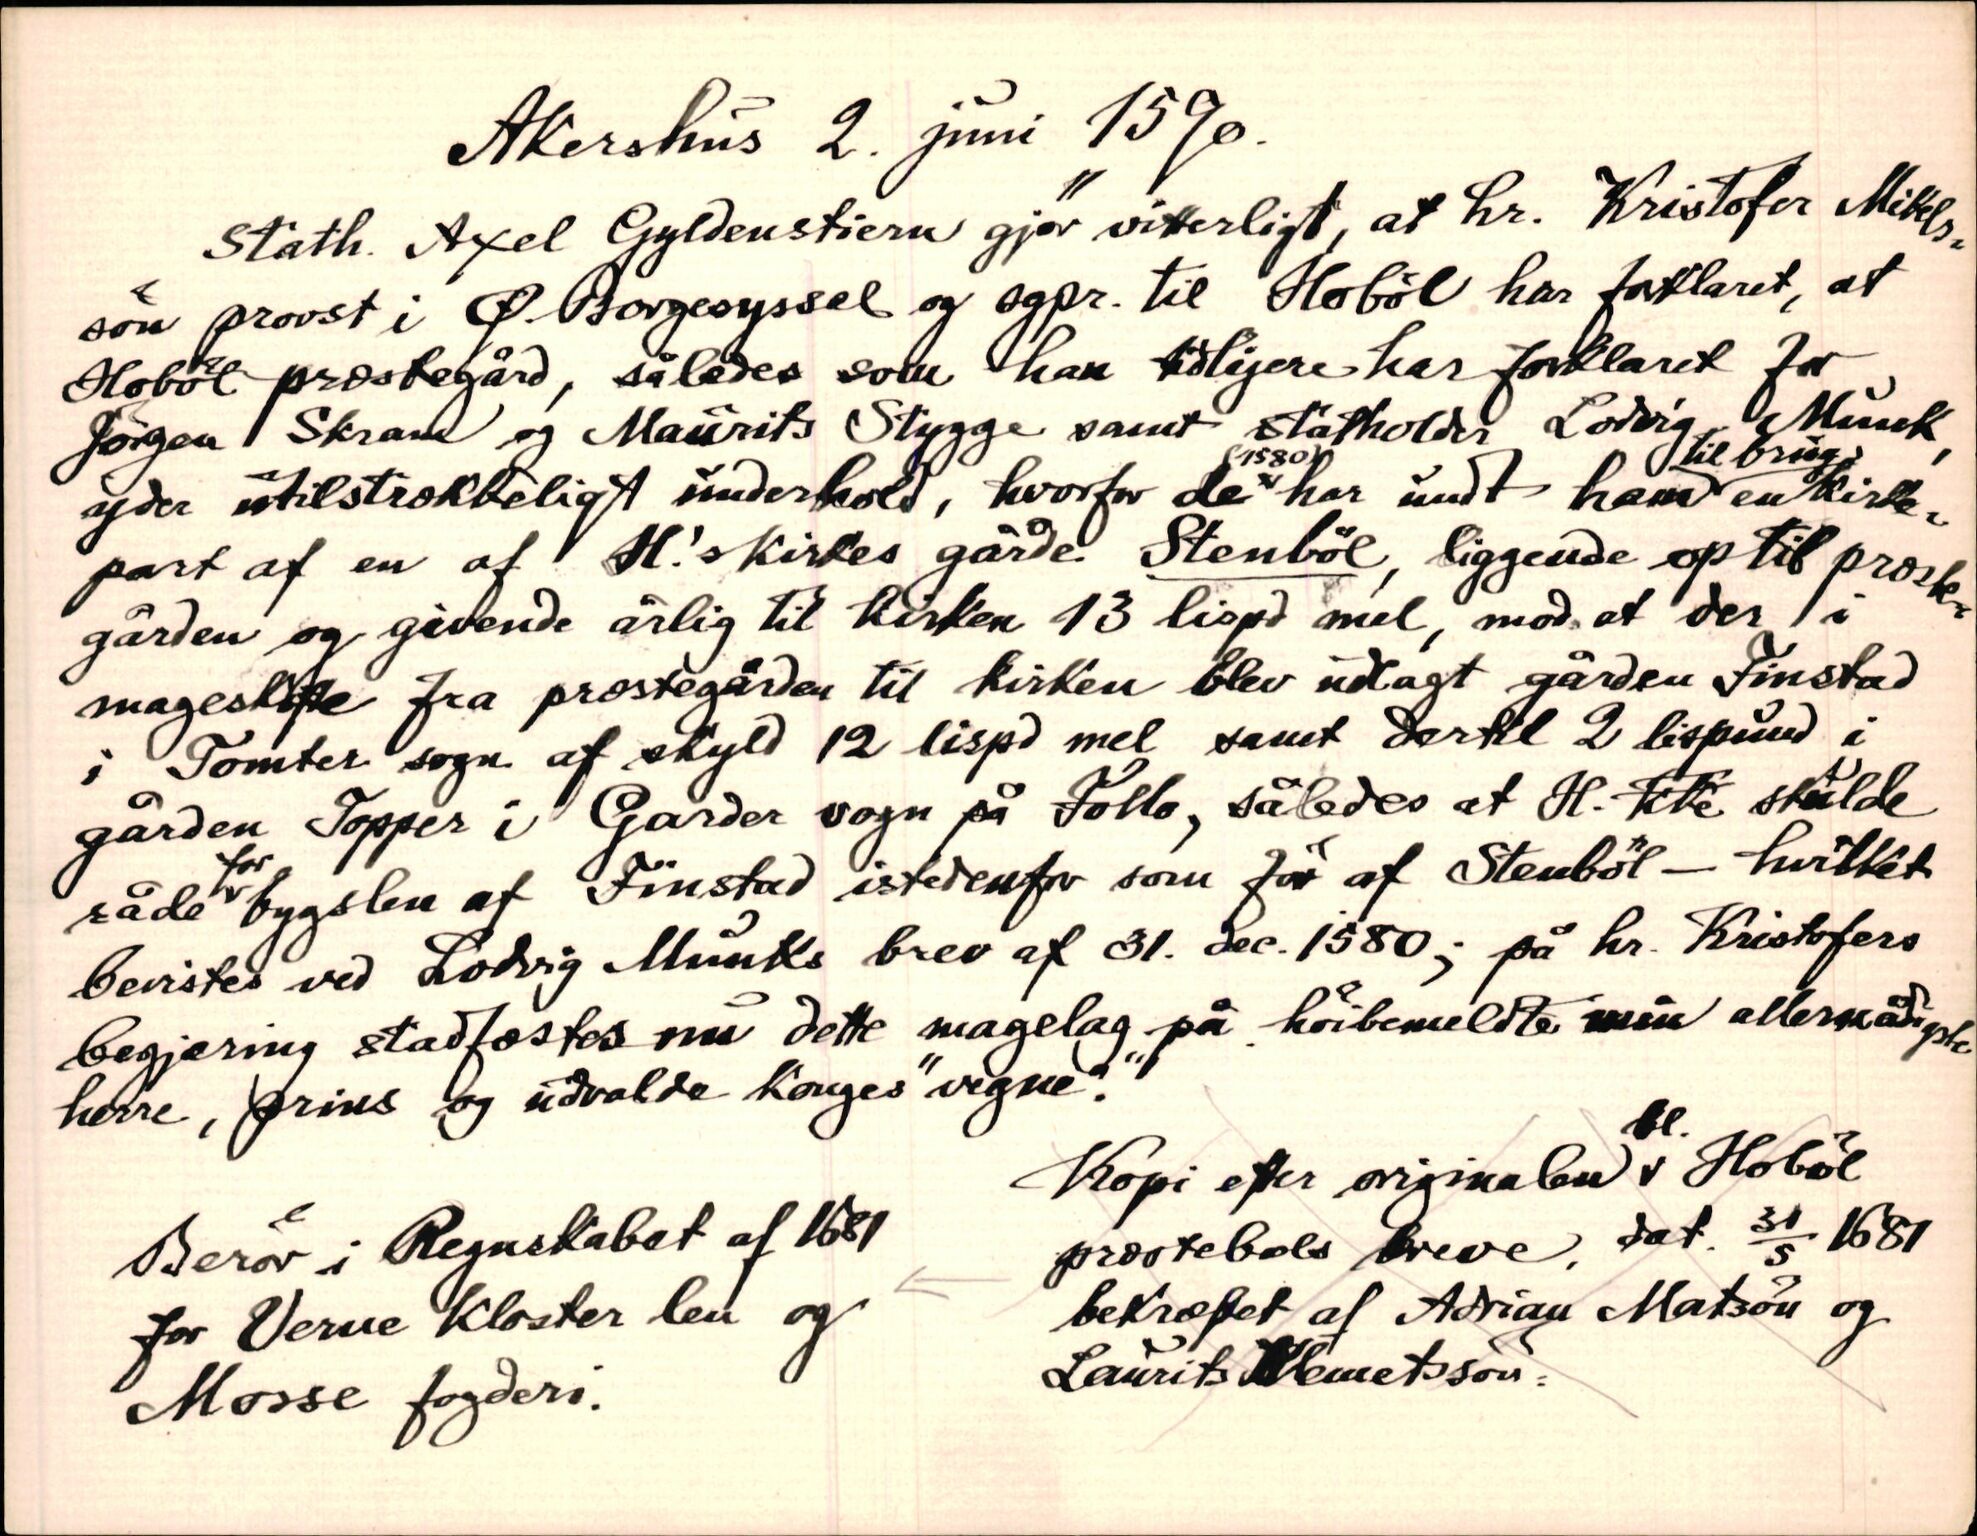 Akershus 2. juni 1590.
Stath. Axel Gyldenstiern gjør "vitterligt, at hr. Kristofer Mikels-
søn provst i Ø. Borgesyssel og sgpr. til Hobøl har forklaret, at
Hobøl prestegård, således som han tidligere har forklaret for
Jörgen Skram og Maurits Stygge samt statholder Lodvig Munk,
yder utilstrækkeligt underhold, hvorfor de (1580) har undt ham til brug en kirke-
part af en af H.'s kirkes gårde Stenböl, liggende op til præste-
gården og givende årlig til kirken 13 lispd mel, mod at der i
mageskifte fra præstegården til kirken blev udlagt gården Finstad
i Tomter sogn af skyld 12 lispd mel samt dertil 2 lispund i
gården Topper i Garder sogn på Follo, således at H. kke skulde
råde for bygslen af Finstad istedenfor som för af Stenböl – hvilket
bevistes ved Lodvig Munks brev af 31. dec. 1580; på hr. Kristofers
begjæring stadfæstes nu dette magelag på höibemeldte min allernådigste
herre, prins og udvalde konges "vegne."
Kopi efter originalen bl. Hoböl
præstebols breve, dat. 31/5 1681
bekræftet af Adrian Matsön og
Laurits Klemetssön.
Berör i Regnskabet af 1681
for Verne Kloster len og
Mosse fogderi.